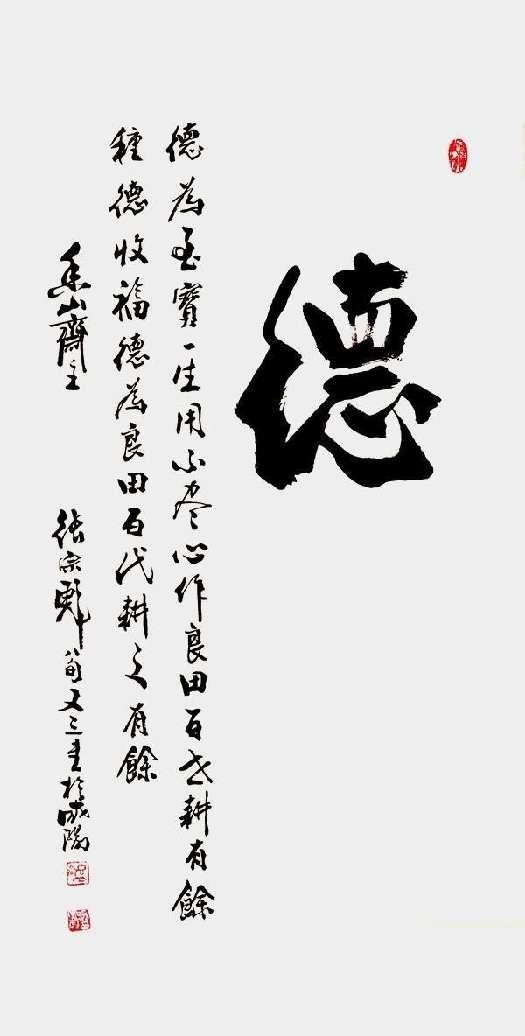 德
德為至寶一生用不尽心作良田百世耕有餘
種德收福德為良田百代耕之有餘
山齋主
張宗 八旬又三書於咸陽